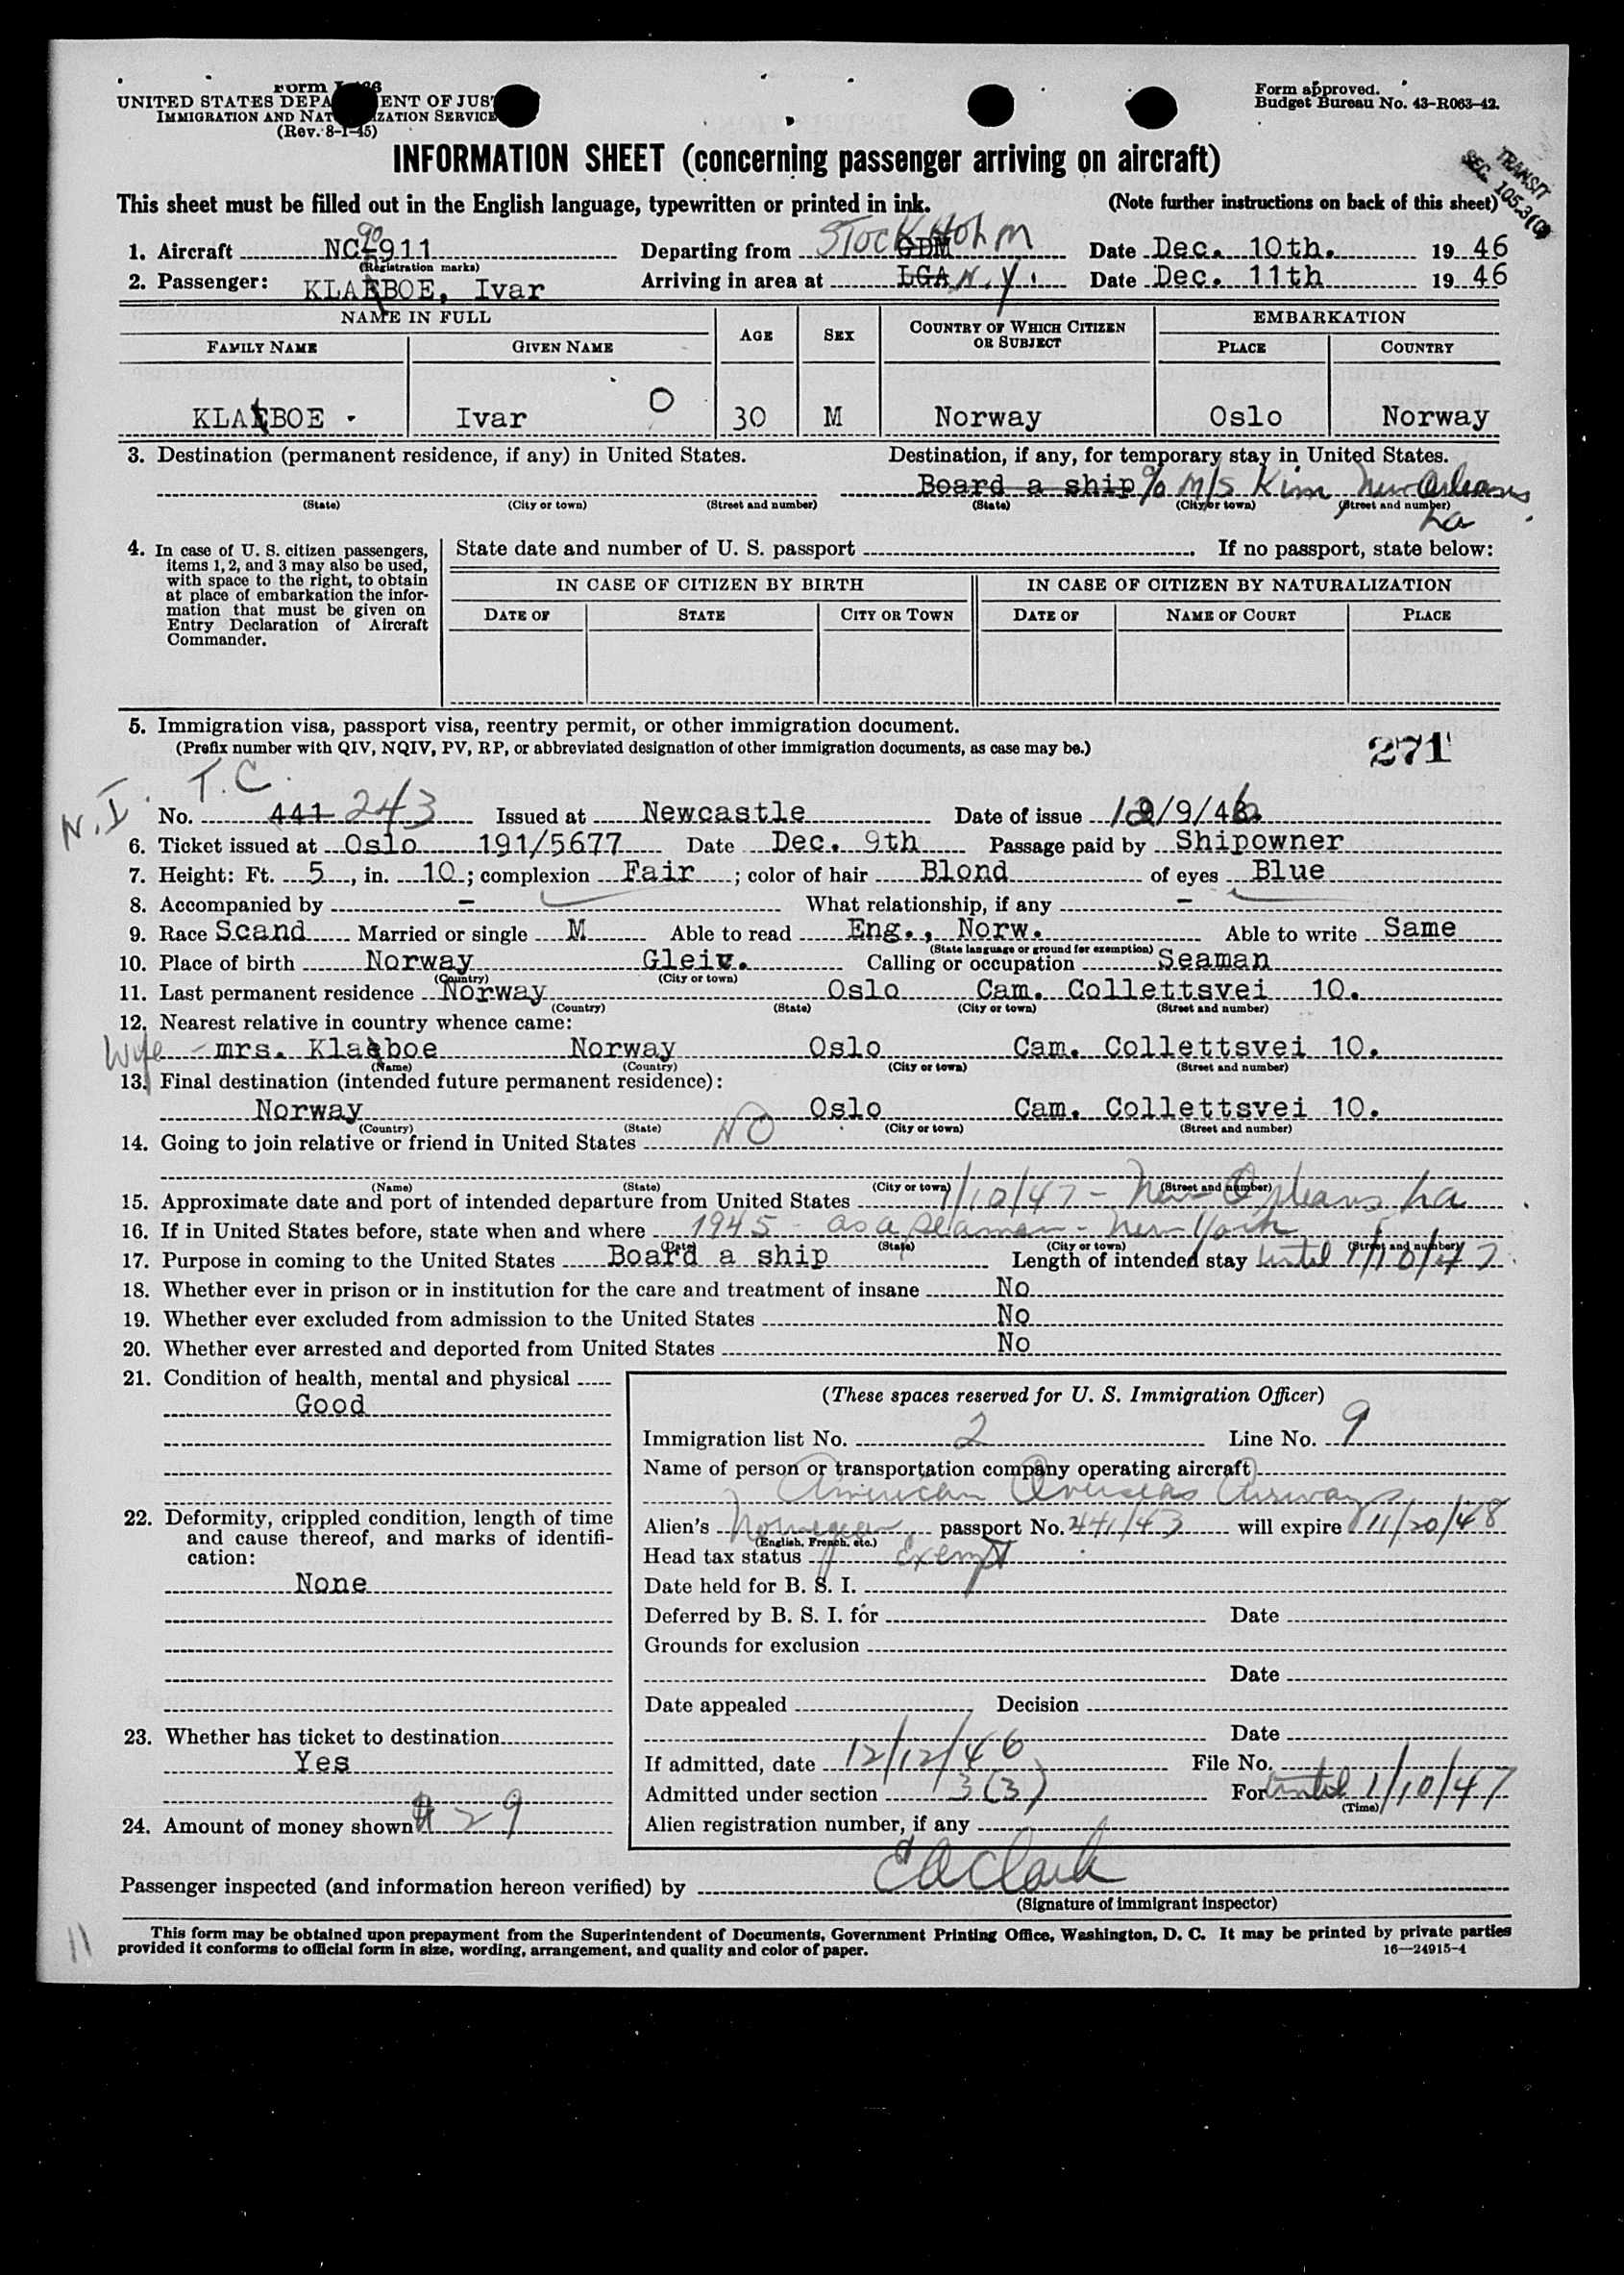 Form I-466
UNITED STATES DEPARTMENT OF JUSTICE
IMMIGRATION AND NATURALIZATION SERVICE
(Rev. 8-1-45)
Form approved.
Budget Bureau No. 43-R063-42.
INFORMATION SHEET (concerning passenger arriving on aircraft)
TRANSIT
SEC. 105.3(C)
This sheet must be filled out in the English language, typewritten or printed in ink. (Note further instructions on back of this sheet)
1. Aircraft NC-90911 Departing from GDM STOCKHOLM Date Dec. 10th. 19 46
(Registration marks)
2. Passenger: KLAEBOE, Ivar Arriving in area at LGA N.Y. Date Dec. 11th 19 46
NAME IN FULL AGE SEX COUNTRY OF WHICH CITIZEN OR SUBJECT EMBARKATION
FAMILY NAME GIVEN NAME PLACE COUNTRY
KLAEBOE Ivar O 30 M Norway Oslo Norway
3. Destination (permanent residence, if any) in United States. Destination, if any, for temporary stay in United States.
Board a ship % M/S Kim, New Orleans, La
(State) (City or town) (Street and number) (State) (City or town) (Street and number)
4. In case of U. S. citizen passengers, items 1, 2, and 3 may also be used, with space to the right, to obtain at place of embarkation the information that must be given on Entry Declaration of Aircraft Commander.
State date and number of U. S. passport . If no passport, state below:
IN CASE OF CITIZEN BY BIRTH IN CASE OF CITIZEN BY NATURALIZATION
DATE OF STATE CITY OR TOWN DATE OF NAME OF COURT PLACE
5. Immigration visa, passport visa, reentry permit, or other immigration document.
(Prefix number with QIV, NQIV, PV, RP, or abbreviated designation of other immigration documents, as case may be.)
271
N.I. T.C.
No. 441 243 Issued at Newcastle Date of issue 12/9/46
6. Ticket issued at Oslo 191/5677 Date Dec. 9th Passage paid by Shipowner
7. Height: Ft. 5, in. 10; complexion Fair; color of hair Blond of eyes Blue
8. Accompanied by - What relationship, if any -
9. Race Scand Married or single M Able to read Eng., Norw. Able to write Same
(State language or ground for exemption)
10. Place of birth Norway Gleiv. Calling or occupation Seaman
(Country) (City or town)
11. Last permanent residence Norway Oslo Cam. Collettsvei 10.
(Country) (State) (City or town) (Street and number)
12. Nearest relative in country whence came:
Wife - mrs. Klaeboe Norway Oslo Cam. Collettsvei 10.
(Name) (Country) (City or town) (Street and number)
13. Final destination (intended future permanent residence):
Norway Oslo Cam. Collettsvei 10.
(Country) (State) (City or town) (Street and number)
14. Going to join relative or friend in United States NO
(Name) (State) (City or town) (Street and number)
15. Approximate date and port of intended departure from United States 1/10/47 - New Orleans, La
16. If in United States before, state when and where 1945 - as a seaman - New York
(Date) (State) (City or town) (Street and number)
17. Purpose in coming to the United States Board a ship Length of intended stay until 1/10/47
18. Whether ever in prison or in institution for the care and treatment of insane No
19. Whether ever excluded from admission to the United States No
20. Whether ever arrested and deported from United States No
21. Condition of health, mental and physical
Good
22. Deformity, crippled condition, length of time and cause thereof, and marks of identification:
None
23. Whether has ticket to destination
Yes
24. Amount of money shown $29
(These spaces reserved for U. S. Immigration Officer)
Immigration list No. 2 Line No. 9
Name of person or transportation company operating aircraft
American Overseas Airways
Alien's Norwegian passport No. 441/43 will expire 11/20/48
(English, French, etc.)
Head tax status Exempt
Date held for B. S. I.
Deferred by B. S. I. for Date
Grounds for exclusion
Date
Date appealed Decision
Date
If admitted, date 12/12/46 File No.
Admitted under section 3(3) For until 1/10/47
(Time)
Alien registration number, if any
Passenger inspected (and information hereon verified) by E A Clark
(Signature of immigrant inspector)
11
This form may be obtained upon prepayment from the Superintendent of Documents, Government Printing Office, Washington, D. C. It may be printed by private parties
provided it conforms to official form in size, wording, arrangement, and quality and color of paper. 16—24915-4